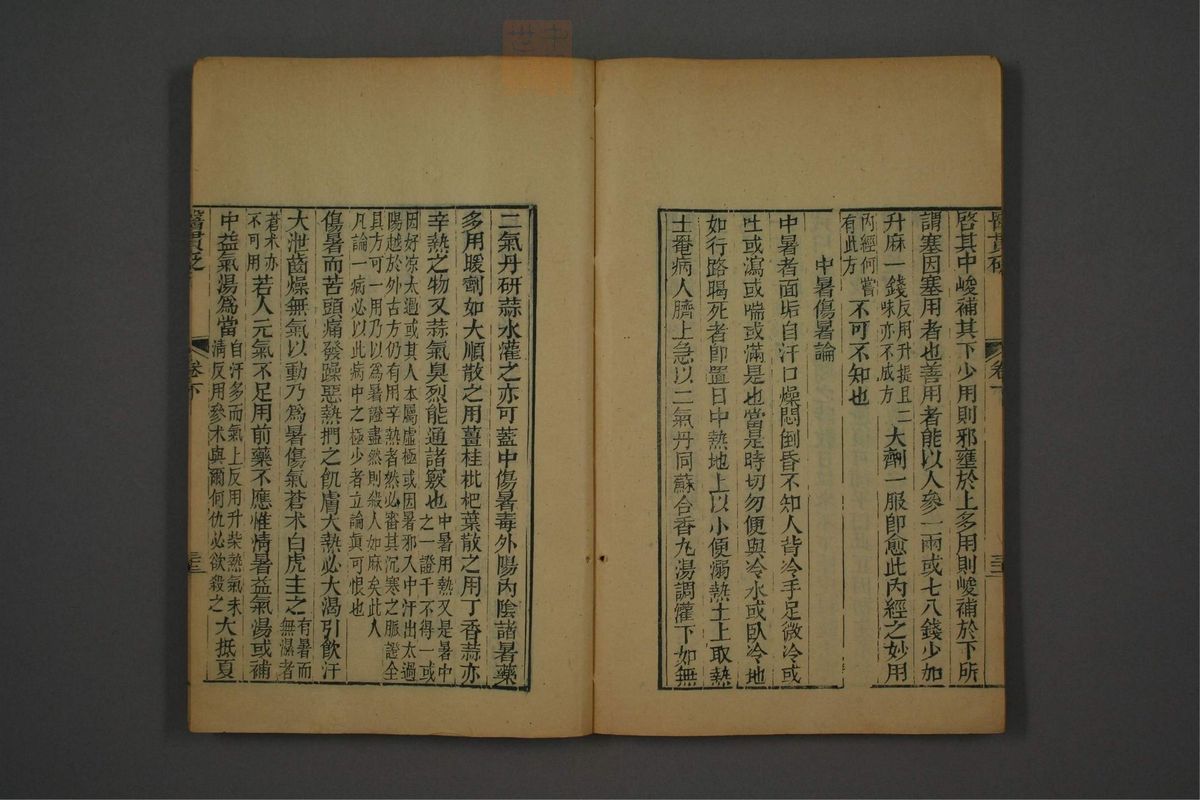 醫貫砭
卷下
三十三
啓其中峻補其下少用則邪壅於上多用則峻補於下所
謂塞因塞用者也善用者能以人參一兩或七八錢少加
升麻一錢反用升提且二味亦不成方大劑一服卽愈此內經之妙用
內經何嘗有此方不可不知也
中暑傷暑論
中暑者面垢自汗口燥悶倒昏不知人背冷手足微冷或
吐或瀉或喘或滿是也當是時切勿便與冷水或臥冷地
如行路暍死者卽置日中熱地上以小便溺熱土上取熱
土罨病人臍上急以二氣丹同蘇合香丸湯調灌下如無
二氣丹研蒜水灌之亦可蓋中傷暑毒外陽內陰諸暑藥
多用暖劑如大順散之用薑桂枇杷葉散之用丁香蒜亦
辛熱之物又蒜氣臭烈能通諸竅也中暑用熱又是暑中之一證千不得一或
因好凉太過或其人本屬虛極或因暑邪入中汗出太過
陽越於外古方仍有用辛熱者然必審其沉寒之脈證全
具方可一用乃以爲暑證盡然則殺人如麻矣此人
凡論一病必以此病中之極少者立論眞可恨也
傷暑而苦頭痛發躁惡熱捫之肌膚大熱必大渴引飮汗
大泄齒燥無氣以動乃爲暑傷氣蒼术白虎主之有暑而無濕者
蒼术亦不可用若人元氣不足用前藥不應惟清暑益氣湯或補
中益氣湯爲當自汗多而氣上反用升柴熱氣未清反用參术與爾何仇必欲殺之大抵夏
醫貫砭
卷下
三十三